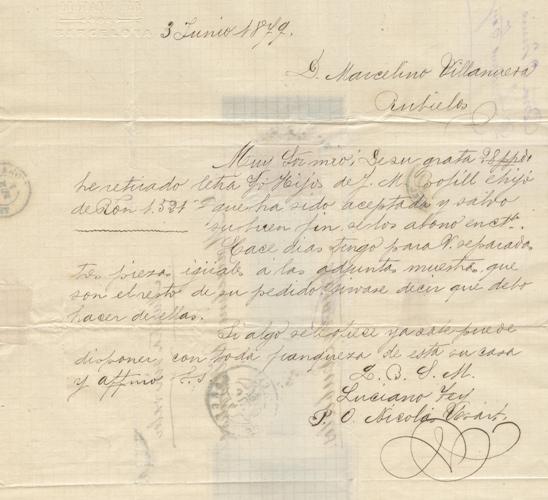 3 Junio 1879.
D. Marcelino Villanueva
Rubielos
Muy Sr. mio; De su grata 28 ppdo.
he retirado letra S/ Hijos de J. M. Bofill é hijo
de Ron 1.521 que ha sido aceptada y salvo
su buen fin se los abono en cta.
Hace dias tengo para V. separadas
tres piezas iguales á las adjuntas muestras que
son el resto de su pedido. Sirvase decir que debo
hacer de ellas.
Si algo se le ofrece ya sabe puede
disponer con toda franqueza de esta su casa
y affmo S. S.
Q. B. S. M.
Luciano
P. O. Nicolás